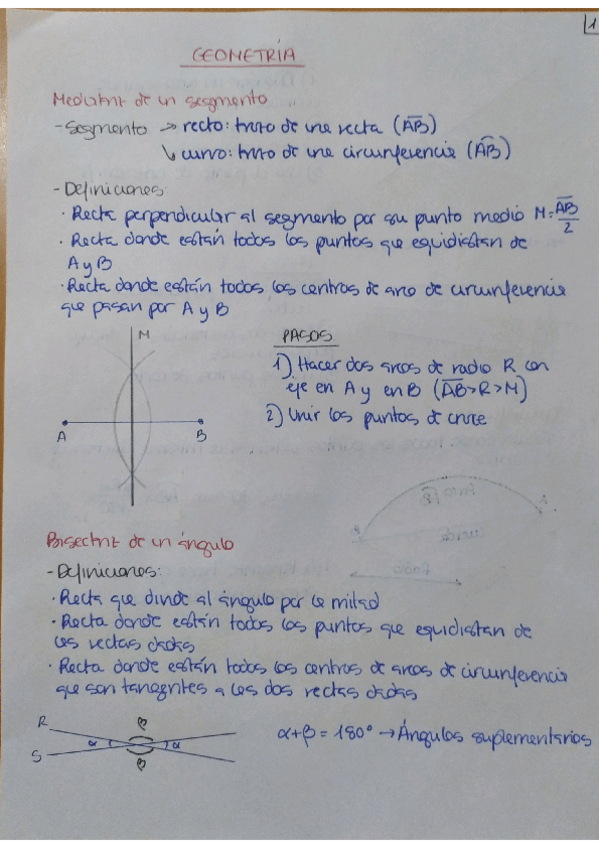 1
GEOMETRÍA
Mediatriz de un segmento
- Segmento → recto: trozo de una recta (AB)
↳ curvo: trozo de una circunferencia (AB)
- Definiciones:
· Recta perpendicular al segmento por su punto medio M = AB/2
· Recta donde están todos los puntos que equidistan de
A y B
· Recta donde están todos los centros de arco de circunferencia
que pasan por A y B
M
PASOS
1) Hacer dos arcos de radio R con
eje en A y en B (AB>R>M)
2) Unir los puntos de cruce
A B
Bisectriz de un ángulo
- Definiciones:
· Recta que divide al ángulo por la mitad
· Recta donde están todos los puntos que equidistan de
las rectas dadas
· Recta donde están todos los centros de arcos de circunferencia
que son tangentes a las dos rectas dadas
R β
α α
S β
α+β = 180° → Ángulos suplementarios